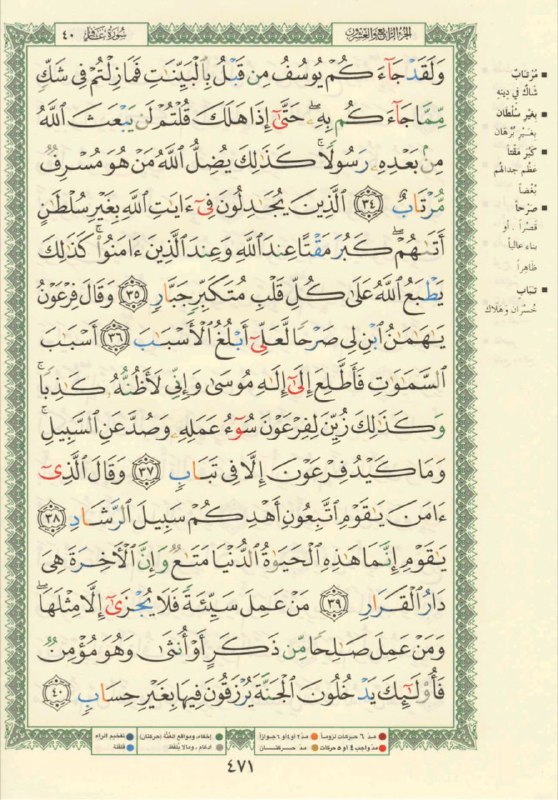 الجزء الرابع والعشرون
سورة غافر
٤٠
وَلَقَدْ جَآءَكُمْ يُوسُفُ مِن قَبْلُ بِٱلْبَيِّنَٰتِ فَمَازِلْتُمْ فِى شَكٍّ
مِّمَّا جَآءَكُم بِهِۦ حَتَّىٰٓ إِذَا هَلَكَ قُلْتُمْ لَن يَبْعَثَ ٱللَّهُ
مِنۢ بَعْدِهِۦ رَسُولًا ۚ كَذَٰلِكَ يُضِلُّ ٱللَّهُ مَنْ هُوَ مُسْرِفٌ
مُّرْتَابٌ ٣٤ ٱلَّذِينَ يُجَٰدِلُونَ فِىٓ ءَايَٰتِ ٱللَّهِ بِغَيْرِ سُلْطَٰنٍ
أَتَىٰهُمْ ۖ كَبُرَ مَقْتًا عِندَ ٱللَّهِ وَعِندَ ٱلَّذِينَ ءَامَنُوا۟ ۚ كَذَٰلِكَ
يَطْبَعُ ٱللَّهُ عَلَىٰ كُلِّ قَلْبِ مُتَكَبِّرٍ جَبَّارٍ ٣٥ وَقَالَ فِرْعَوْنُ
يَٰهَٰمَٰنُ ٱبْنِ لِى صَرْحًا لَّعَلِّىٓ أَبْلُغُ ٱلْأَسْبَٰبَ ٣٦ أَسْبَٰبَ
ٱلسَّمَٰوَٰتِ فَأَطَّلِعَ إِلَىٰٓ إِلَٰهِ مُوسَىٰ وَإِنِّى لَأَظُنُّهُۥ كَٰذِبًا ۚ
وَكَذَٰلِكَ زُيِّنَ لِفِرْعَوْنَ سُوٓءُ عَمَلِهِۦ وَصُدَّ عَنِ ٱلسَّبِيلِ ۚ
وَمَا كَيْدُ فِرْعَوْنَ إِلَّا فِى تَبَابٍ ٣٧ وَقَالَ ٱلَّذِىٓ
ءَامَنَ يَٰقَوْمِ ٱتَّبِعُونِ أَهْدِكُمْ سَبِيلَ ٱلرَّشَادِ ٣٨
يَٰقَوْمِ إِنَّمَا هَٰذِهِ ٱلْحَيَوٰةُ ٱلدُّنْيَا مَتَٰعٌ وَإِنَّ ٱلْءَاخِرَةَ هِىَ
دَارُ ٱلْقَرَارِ ٣٩ مَنْ عَمِلَ سَيِّئَةً فَلَا يُجْزَىٰٓ إِلَّا مِثْلَهَا ۖ
وَمَنْ عَمِلَ صَٰلِحًا مِّن ذَكَرٍ أَوْ أُنثَىٰ وَهُوَ مُؤْمِنٌ
فَأُو۟لَٰٓئِكَ يَدْخُلُونَ ٱلْجَنَّةَ يُرْزَقُونَ فِيهَا بِغَيْرِ حِسَابٍ ٤٠
■ مُرْتَابٌ
شَاكٌّ في دِينِهِ
■ بغَيْر سُلْطَان
بغَيْر بُرْهَان
■ كَبُرَ مَقْتاً
عظُم جدالهم
بُغْضاً
■ صَرْحاً
قَصْراً. أو
بناء عالياً
ظَاهِراً
■ تَبَاب
خُسْران وَهَلاك
مدّ ٦ حركات لزوماً
مدّ ٢ أو ٤ أو ٦ جوازاً
إخفاء، ومواقع الغُنَّة (حركتان)
تفخيم الراء
مدّ واجب ٤ أو ٥ حركات
مدّ حركتان
ادغام، وما لا يُلفَظ
قلقلة
٤٧١